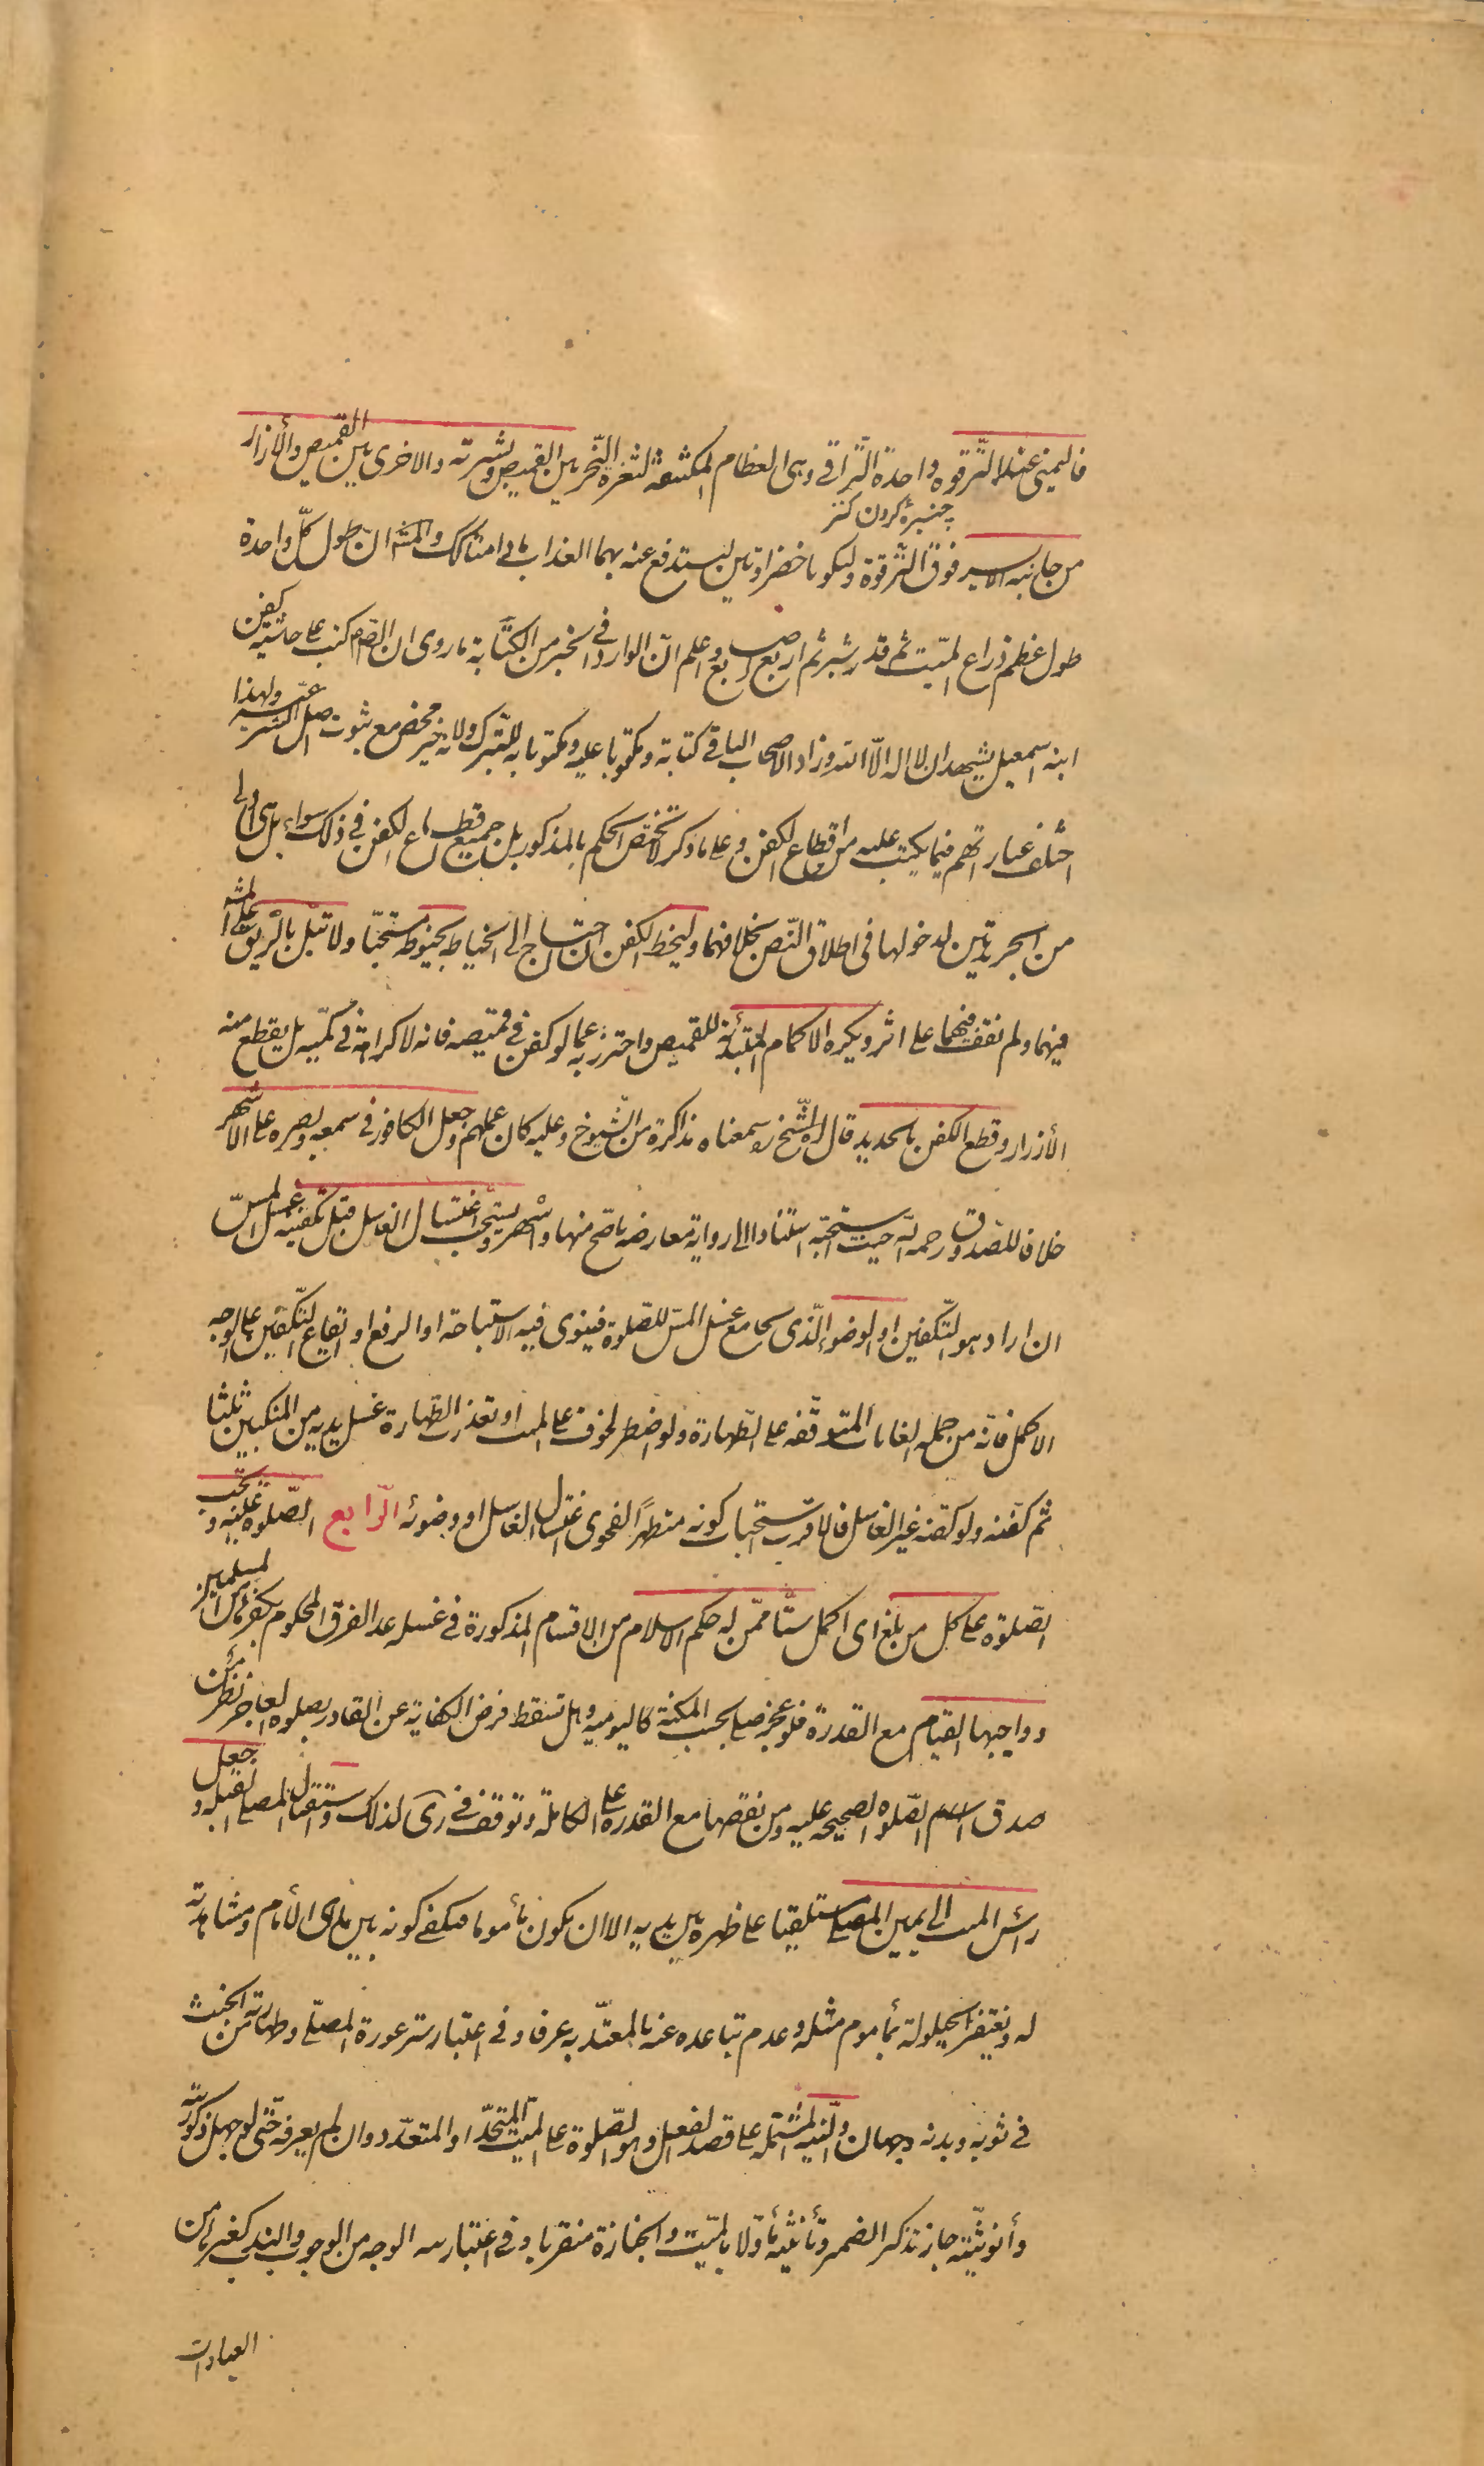 فاليمنى عند الترقوة واحدة التراقي وهي العظام المكتنفة لثغرة النحر بين القميص وبشرته والاخرى بين القميص والأزار
چنبرهٔ گردن
من جانبه الايسر فوق الترقوة وليكونا خضراوتين ليستدفع عنه بهما العذاب مادامتا كك والمشهور ان طول كلّ واحدة
طول عظم ذراع الميّت ثم قدر شبر ثم اربع اصابع واعلم انّ الوارد في الخبر من الكتابة ما روى ان الصّم كتب على حاشية كفن
ابنه اسمعيل يشهد ان لا اله الّا الله وزاد الاصحاب الباقي كتابة ومكتوبا عليه ومكتوبا به للتبرك ولانه خير محض مع ثبوت اصل الشرعيّة ولهذا
اختلف عباراتهم فيما يكتب عليه من اقطاع الكفن وعلى ما ذكر لا تختص الحكم بالمذكور بل جميع اقطاع الكفن في ذلك سواء بل هي اولى
من الجريدتين لدخولها في اطلاق النّص بخلافهما وليخط الكفن ان احتاج الى الخياطه بخيوطه مستحبّا ولا تبل بالريق على المشهور
فيهما ولم نقف فيهما على اثر ويكره الاكمام المبتدأة للقميص واحترز به عما لو كفن في قميصه فانه لا كراهة في كمّيه بل يقطع منه
الأزرار وقطع الكفن بالحديد قال الشّيخ ره سمعناه مذاكرة من الشّيوخ وعليه كان عملهم وجعل الكافور في سمعه وبصره على الاشهر
خلافا للصّدوق رحمه الله حيث استحبّه استنادا الى رواية معارضه باصح منها واشهر ويستحب اغتسال الغاسل قبل تكفينه غسل المسّ
ان اراد هو التكفين او الوضوء الّذي يجامع غسل المسّ للصّلوة فينوى فيه الاستباحة او الرفع او ايقاع التّكفين على الوجه
الاكمل فانّه من جملة الغايات المتوقّفه على الطّهارة ولو اضطر لخوف على الميت او تعذرت الطّهارة غسل يديه من المنكبين ثلثا
ثم كفّنه ولو كفّنه غير الغاسل فالاقرب استحباب كونه متطهرًا لفحوى اغتسال الغاسل او وضوئه الرّابع الصّلوة عليه وتجب
الصّلوة على كل من بلغ اى اكمل ستّا ممّن له حكم الاسلام من الاقسام المذكورة في غسله عدا الفرق المحكوم بكفرها من المسلمين
وواجبها القيام مع القدرة فلو عجز صلى بحسب المكنة كاليوميه وهل تسقط فرض الكفاية عن القادر بصلوة العاجز نظر من
صدق الصّلوة الصحيحه عليه ومن نقصها مع القدرة على الكاملة وتوقف في كرى لذلك واستقبال المصلى القبلة وجعل
رأس الميت الى يمين المصلى مستلقيا على ظهره بين يديه الا ان يكون مأموما فيكفى كونه بين يدى الأمام ومشاهدته
له وتغتفر الحيلولة بمأموم مثله وعدم تباعده عنه بالمعتدّ به عرفا وفي اعتبار ستر عورة المصلّى وطهارته من الخبث
في ثوبه وبدنه وجهان والنيّه المشتمله على قصد الفعل وهو الصّلوة على الميّت المتحدّ او المتعدّد وان لم يعرفه حتى لو جهل ذكوريته
وأنوثيته جاز تذكير الضمير وتأنيثه مأوّلا بالميّت والجنازة متقربا وفي اعتبار نيه الوجه من الوجوب والندب كغيرها من
العبادات